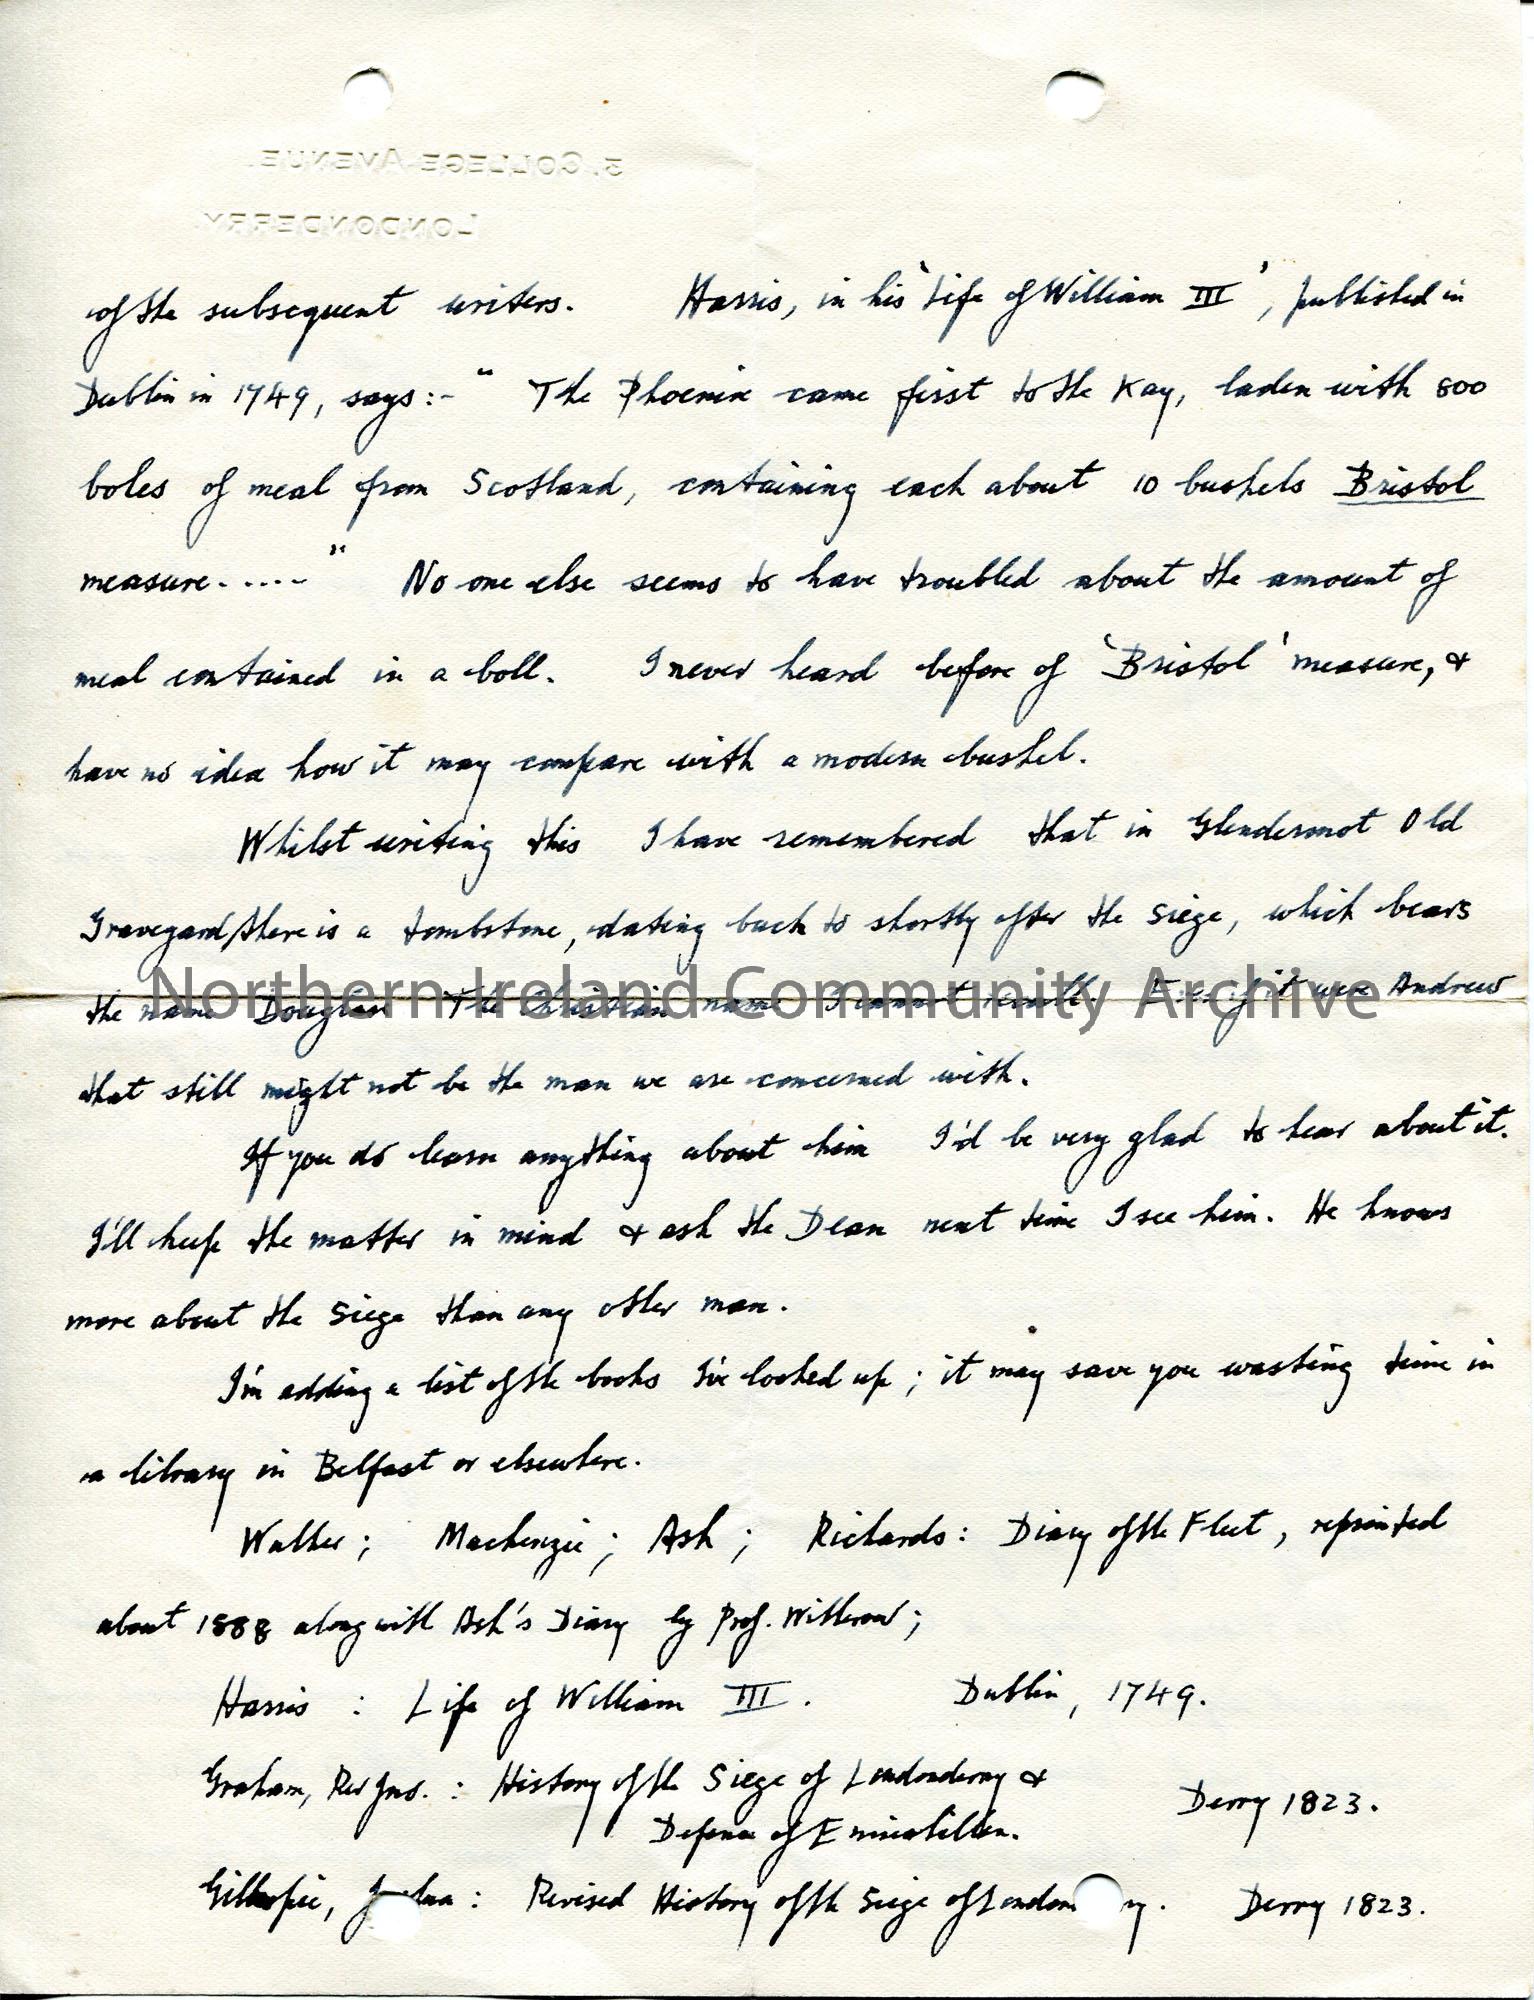 3, COLLEGE AVENUE.
LONDONDERRY.
of the subsequent writers. Harris, in his 'Life of William III', published in
Dublin in 1749, says:- " The Phoenix came first to the Kay, laden with 800
boles of meal from Scotland, containing each about 10 bushels Bristol
measure....." No one else seems to have troubled about the amount of
meal contained in a boll. I never heard before of 'Bristol' measure, &
have no idea how it may compare with a modern bushel.
Whilst writing this I have remembered that in Glendermot Old
Graveyard, there is a tombstone, dating back to shortly after the Siege, which bears
Northern Ireland Community Archive
the name Douglas. The Christian name I cannot recall. Even if it were Andrew
that still might not be the man we are concerned with.
If you do learn anything about him I'd be very glad to hear about it.
I'll keep the matter in mind & ask the Dean next time I see him. He knows
more about the Siege than any other man.
I'm adding a list of the books I've looked up; it may save you wasting time in
a library in Belfast or elsewhere.
Walker; Mackenzie; Ash; Richards: Diary of the Fleet, reprinted
about 1888 along with Ash's Diary by Prof. Witherow;
Harris : Life of William III. Dublin, 1749.
Graham, Rev Jno. : History of the Siege of Londonderry &
Defence of Enniskillen. Derry 1823.
Gillespie, : Revised History of the Siege of Derry 1823.